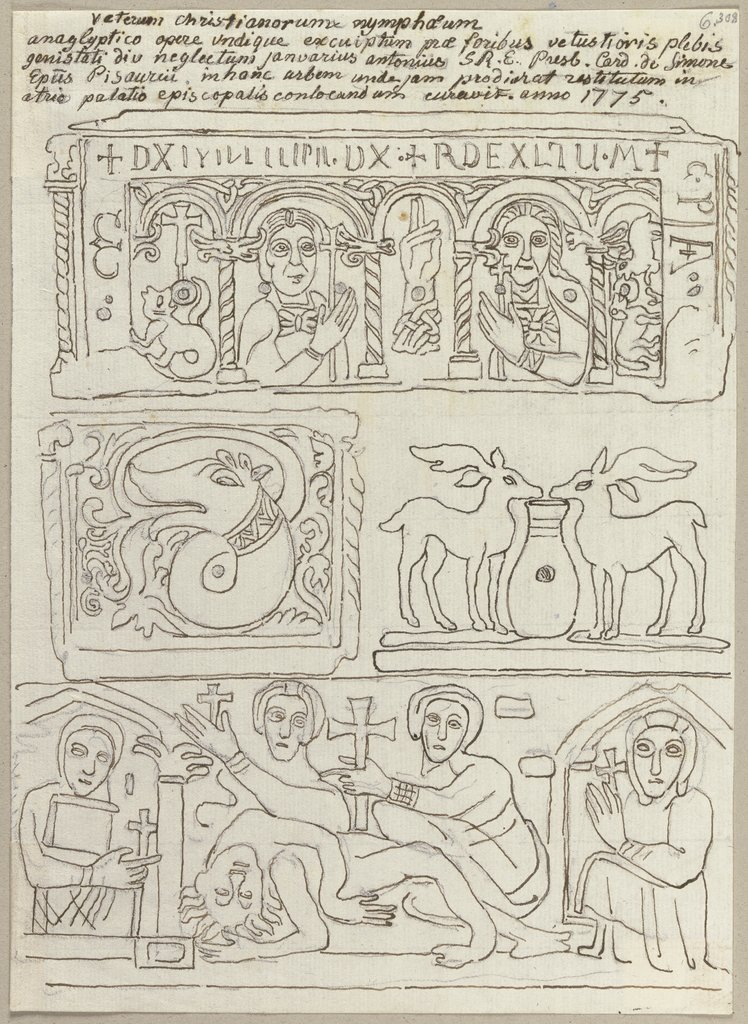 Veterum christianorum nymphæum
anaglyptico opere undique exculptum præ foribus vetustioris plebis
genistati diu neglectum januarius antonius S.R.E. Presb. Card. de Simone
Epūs Pisaurii in hanc urbem unde jam prodierat restitutum in
atrio palatio episcopalis conlocandum curavit. anno 1775.
6,308
+ DX UX + RDEXLTU·M +